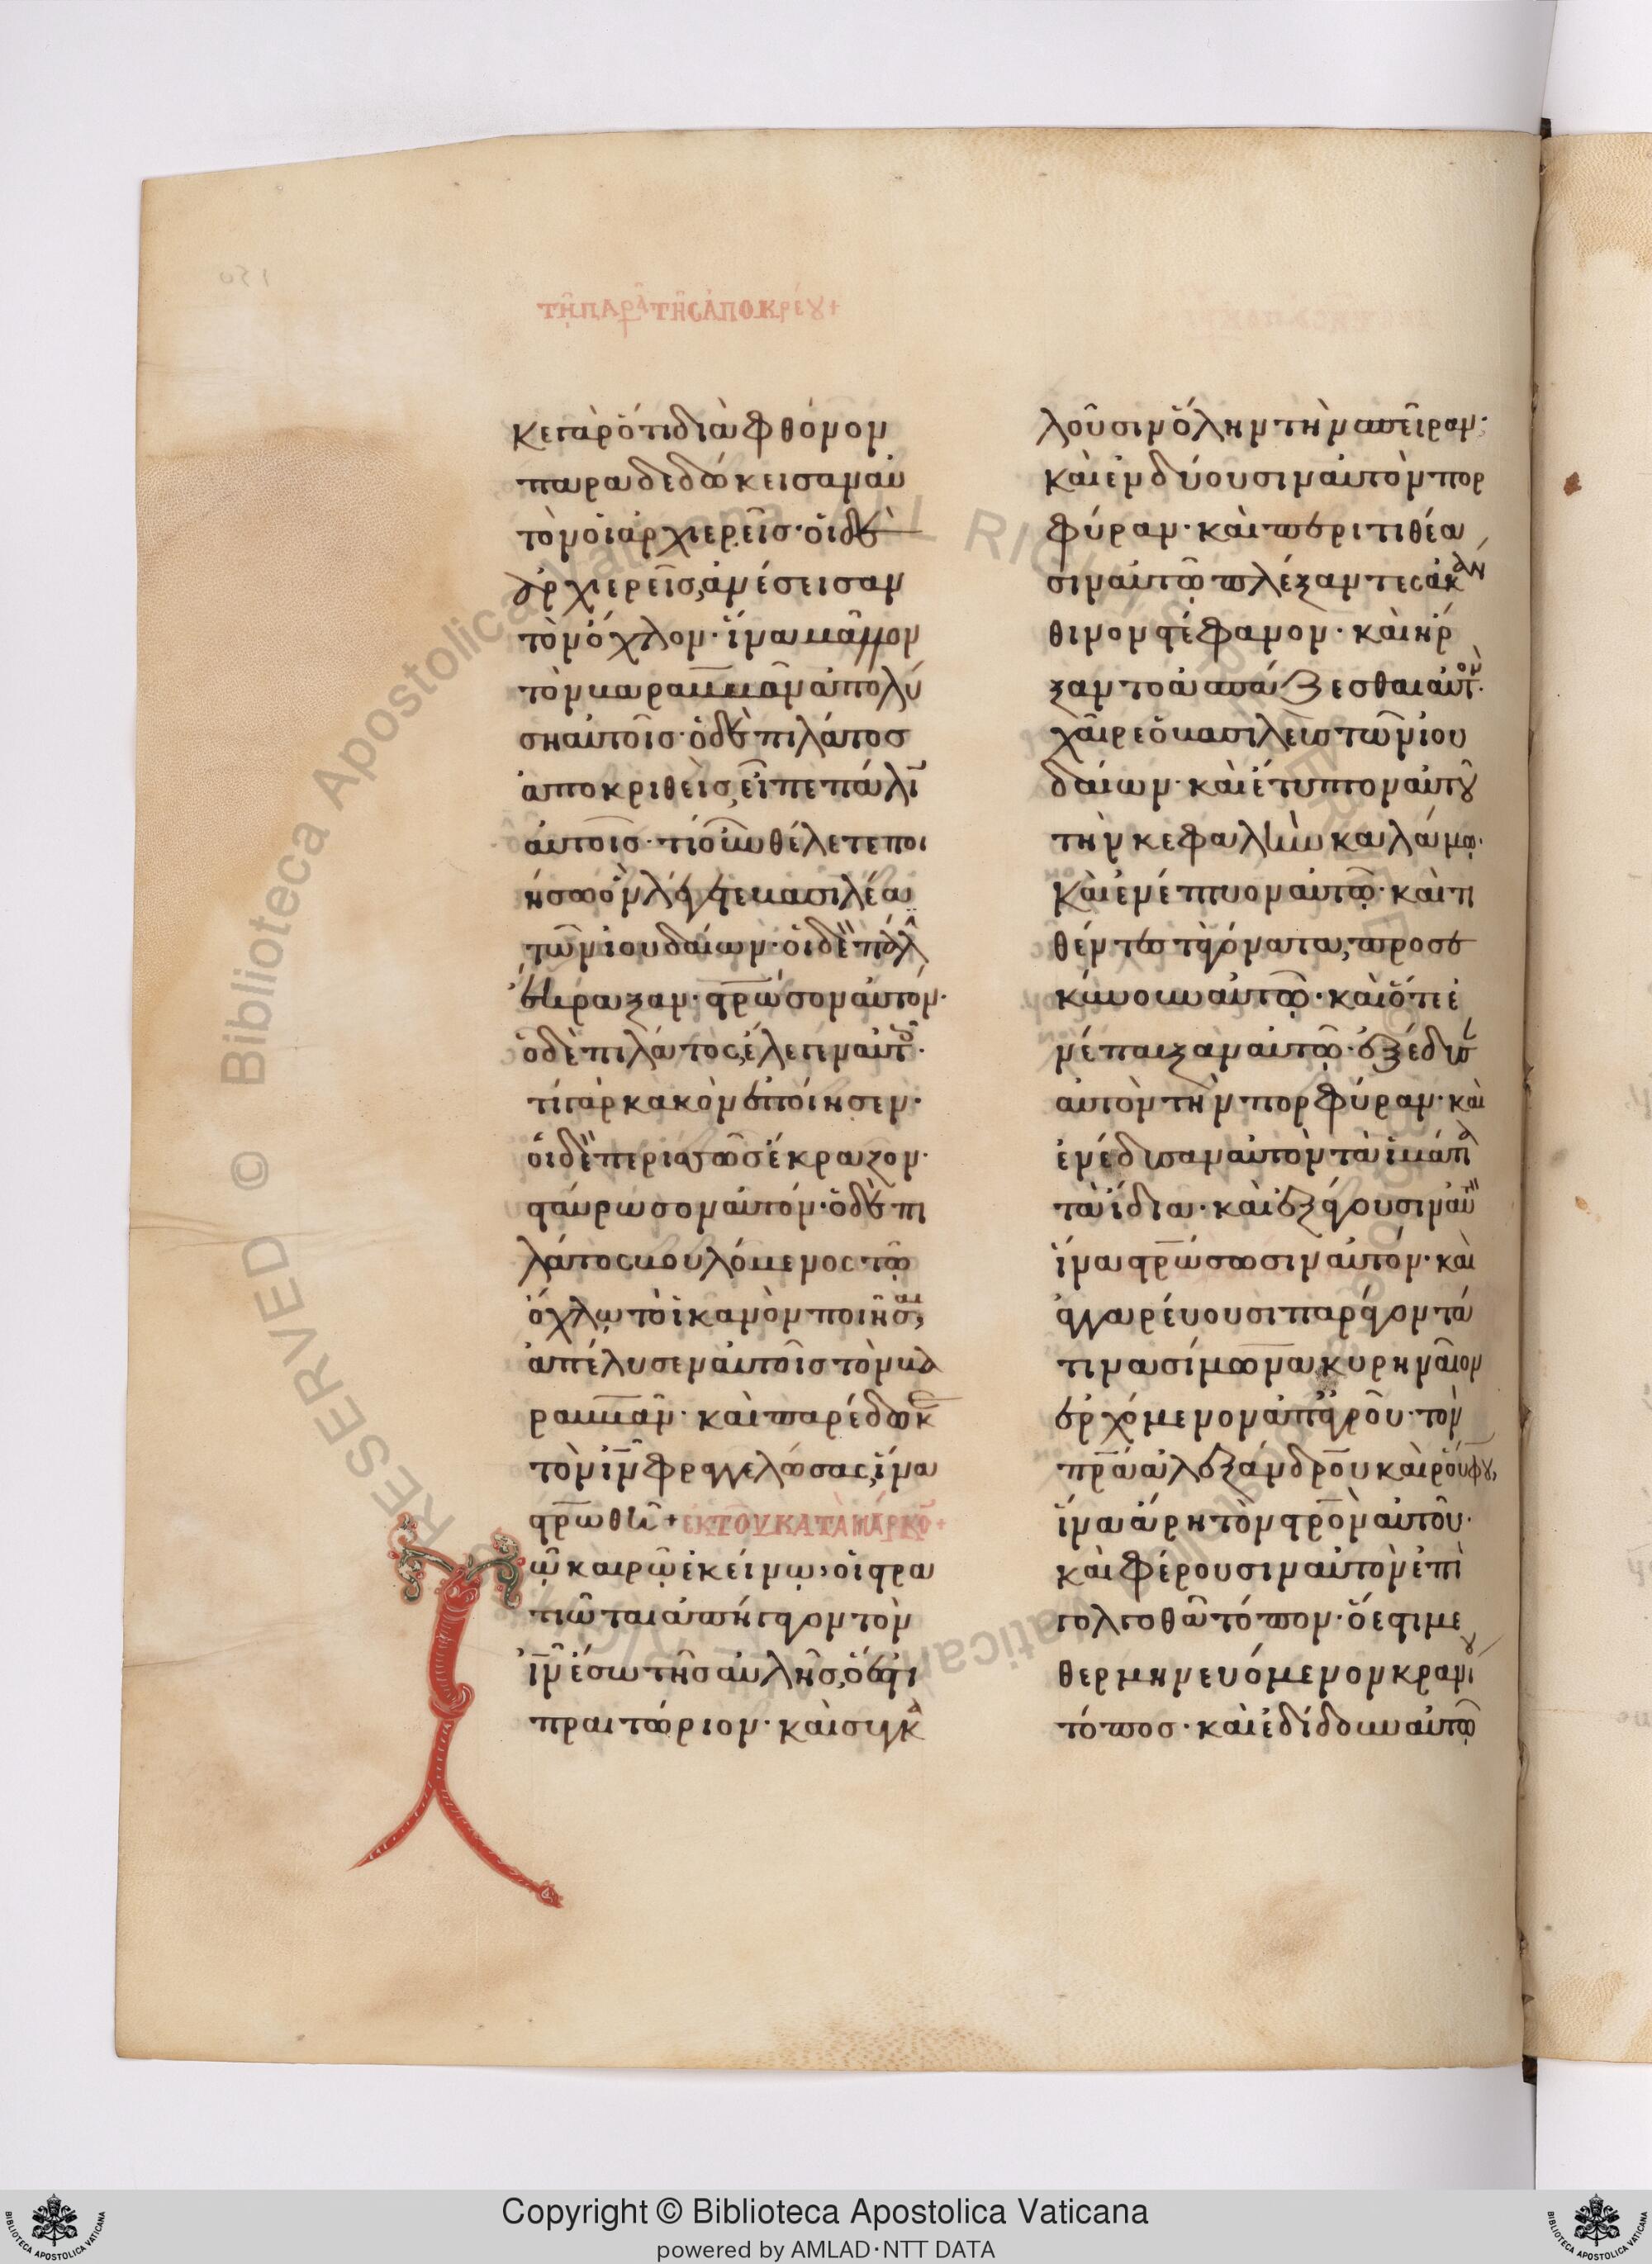 τῇ παρα τῆς ἀποκρέου +
κε γὰρ ὅτι διὰ φθόνον
παραδεδώκεισαν αὐ
τὸν οἱ ἀρχιερεῖς· οἱ δὲ
ἀρχιερεῖς, ἀνέσεισαν
τὸν ὄχλον· ἵνα μᾶλλον
τὸν βαραββᾶν ἀπολύ
ση αὐτοῖς· ὁ δὲ πιλάτος
ἀποκριθεὶς, εἶπε πάλῑ
αὐτοῖς· τί οὖν θέλετε ποι
ήσω ὃν λέγετε βασιλέα
τῶν ἰουδαίων· οἱ δὲ πάλ
ἔκραξαν· στρ̅ωσον αὐτόν·
ὁ δὲ πιλάτος, ἔλεγεν αὐτοῖς·
τί γὰρ κακὸν ἐποίησεν·
οἱ δὲ περισσῶς ἔκραζον·
σταύρωσον αὐτόν· ὁ δὲ πι
λάτος βουλόμενος τῷ
ὄχλω τὸ ἱκανὸν ποιῆσαι,
ἀπέλυσεν αὐτοῖς τὸν βα
ραββᾶν· καὶ παρέδωκ
τὸν ιν̅ φραγελώσας, ἵνα
στρ̅ωθῆ + ἐκ τοῦ κατὰ μάρκο̅ +
Τῷ καιρῷ ἐκείνῳ, οἱ στρα
τιῶται ἀπήγαγον τὸν
ιν̅ ἔσω τῆς αὐλῆς, ὅ ἐστι
πραιτώριον· καὶ συγκα
λοῦσιν ὅλην τὴν σπεῖραν·
καὶ ἐνδύουσιν αὐτὸν πορ
φύραν· καὶ περιτιθέα
σιν αὐτῷ πλέξαντες ἀκάν
θινον στέφανον· καὶ ἤρ
ξαντο ἀσπάζεσθαι αὐτόν·
χαῖρε ὁ βασιλεὺς τῶν ἰου
δαίων· καὶ ἔτυπτον αὐτοῦ
τὴν κεφαλὴν καλάμῳ·
Καὶ ἐνέπτυον αὐτῷ· καὶ τι
θέντες τὰ γόνατα, προσε
κύνουν αὐτῷ· καὶ ὅτε ἐ
νέπαιξαν αὐτῷ· ἐξέδυσ
αὐτὸν τὴν πορφύραν· καὶ
ἐνέδυσαν αὐτὸν τὰ ἱμάτια
τὰ ἴδια· καὶ ἐξάγουσιν αὐτ
ἵνα στρ̅ώσωσιν αὐτόν· καὶ
ἀγγαρεύουσι παράγοντά
τινα σίμωνα κυρηναῖον
ἐρχόμενον ἀπ᾽ ἀγροῦ· τὸν
πρ̅α ἀλεξάνδρου καὶ ῥούφου,
ἵνα ἄρη τὸν στρ̅ὸν αὐτοῦ·
καὶ φέρουσιν αὐτὸν ἐπὶ
γολγοθᾶ τόπον· ὅ ἐστι με
θερμηνευόμενον κρανίου
τόπος· καὶ ἐδίδουν αὐτῷ
© Biblioteca Apostolica Vaticana ALL RIGHTS RESERVED
Copyright © Biblioteca Apostolica Vaticana
powered by AMLAD·NTT DATA
BIBLIOTECA APOSTOLICA VATICANA
BIBLIOTECA APOSTOLICA VATICANA